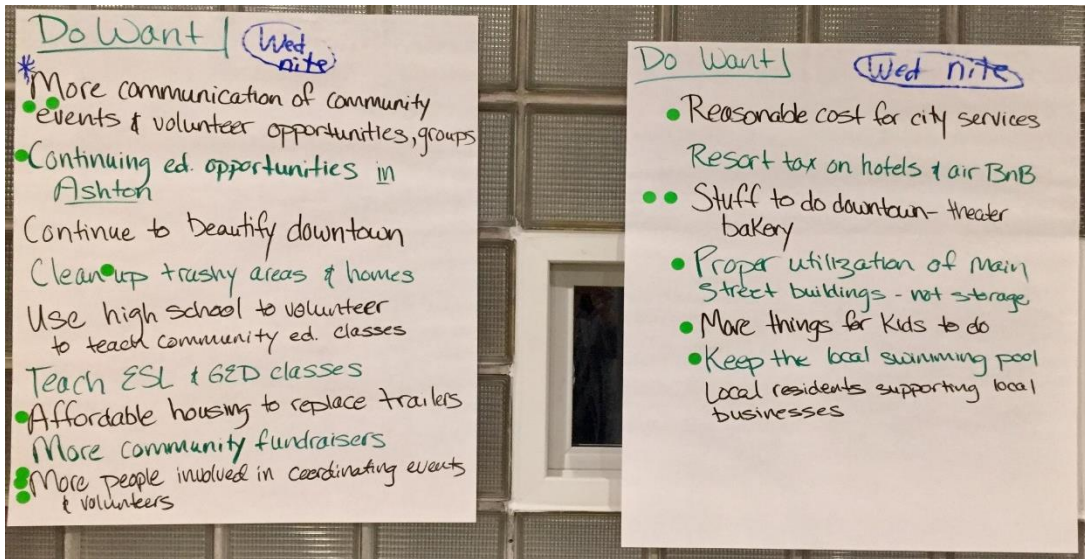 Do Want!
Wed
nite
* More communication of community
events & volunteer opportunities, groups
Continuing ed. opportunities in
Ashton
Continue to beautify downtown
Clean up trashy areas & homes
Use high school to volunteer
to teach community ed. classes
Teach ESL & GED classes
Affordable housing to replace trailers
More community fundraisers
More people involved in coordinating events
& volunteers
Do Want!
Wed nite
Reasonable cost for city services
Resort tax on hotels & air BnB
Stuff to do downtown - theater
bakery
Proper utilization of Main
Street buildings - not storage
More things for Kids to do
Keep the local swimming pool
Local residents supporting local
businesses